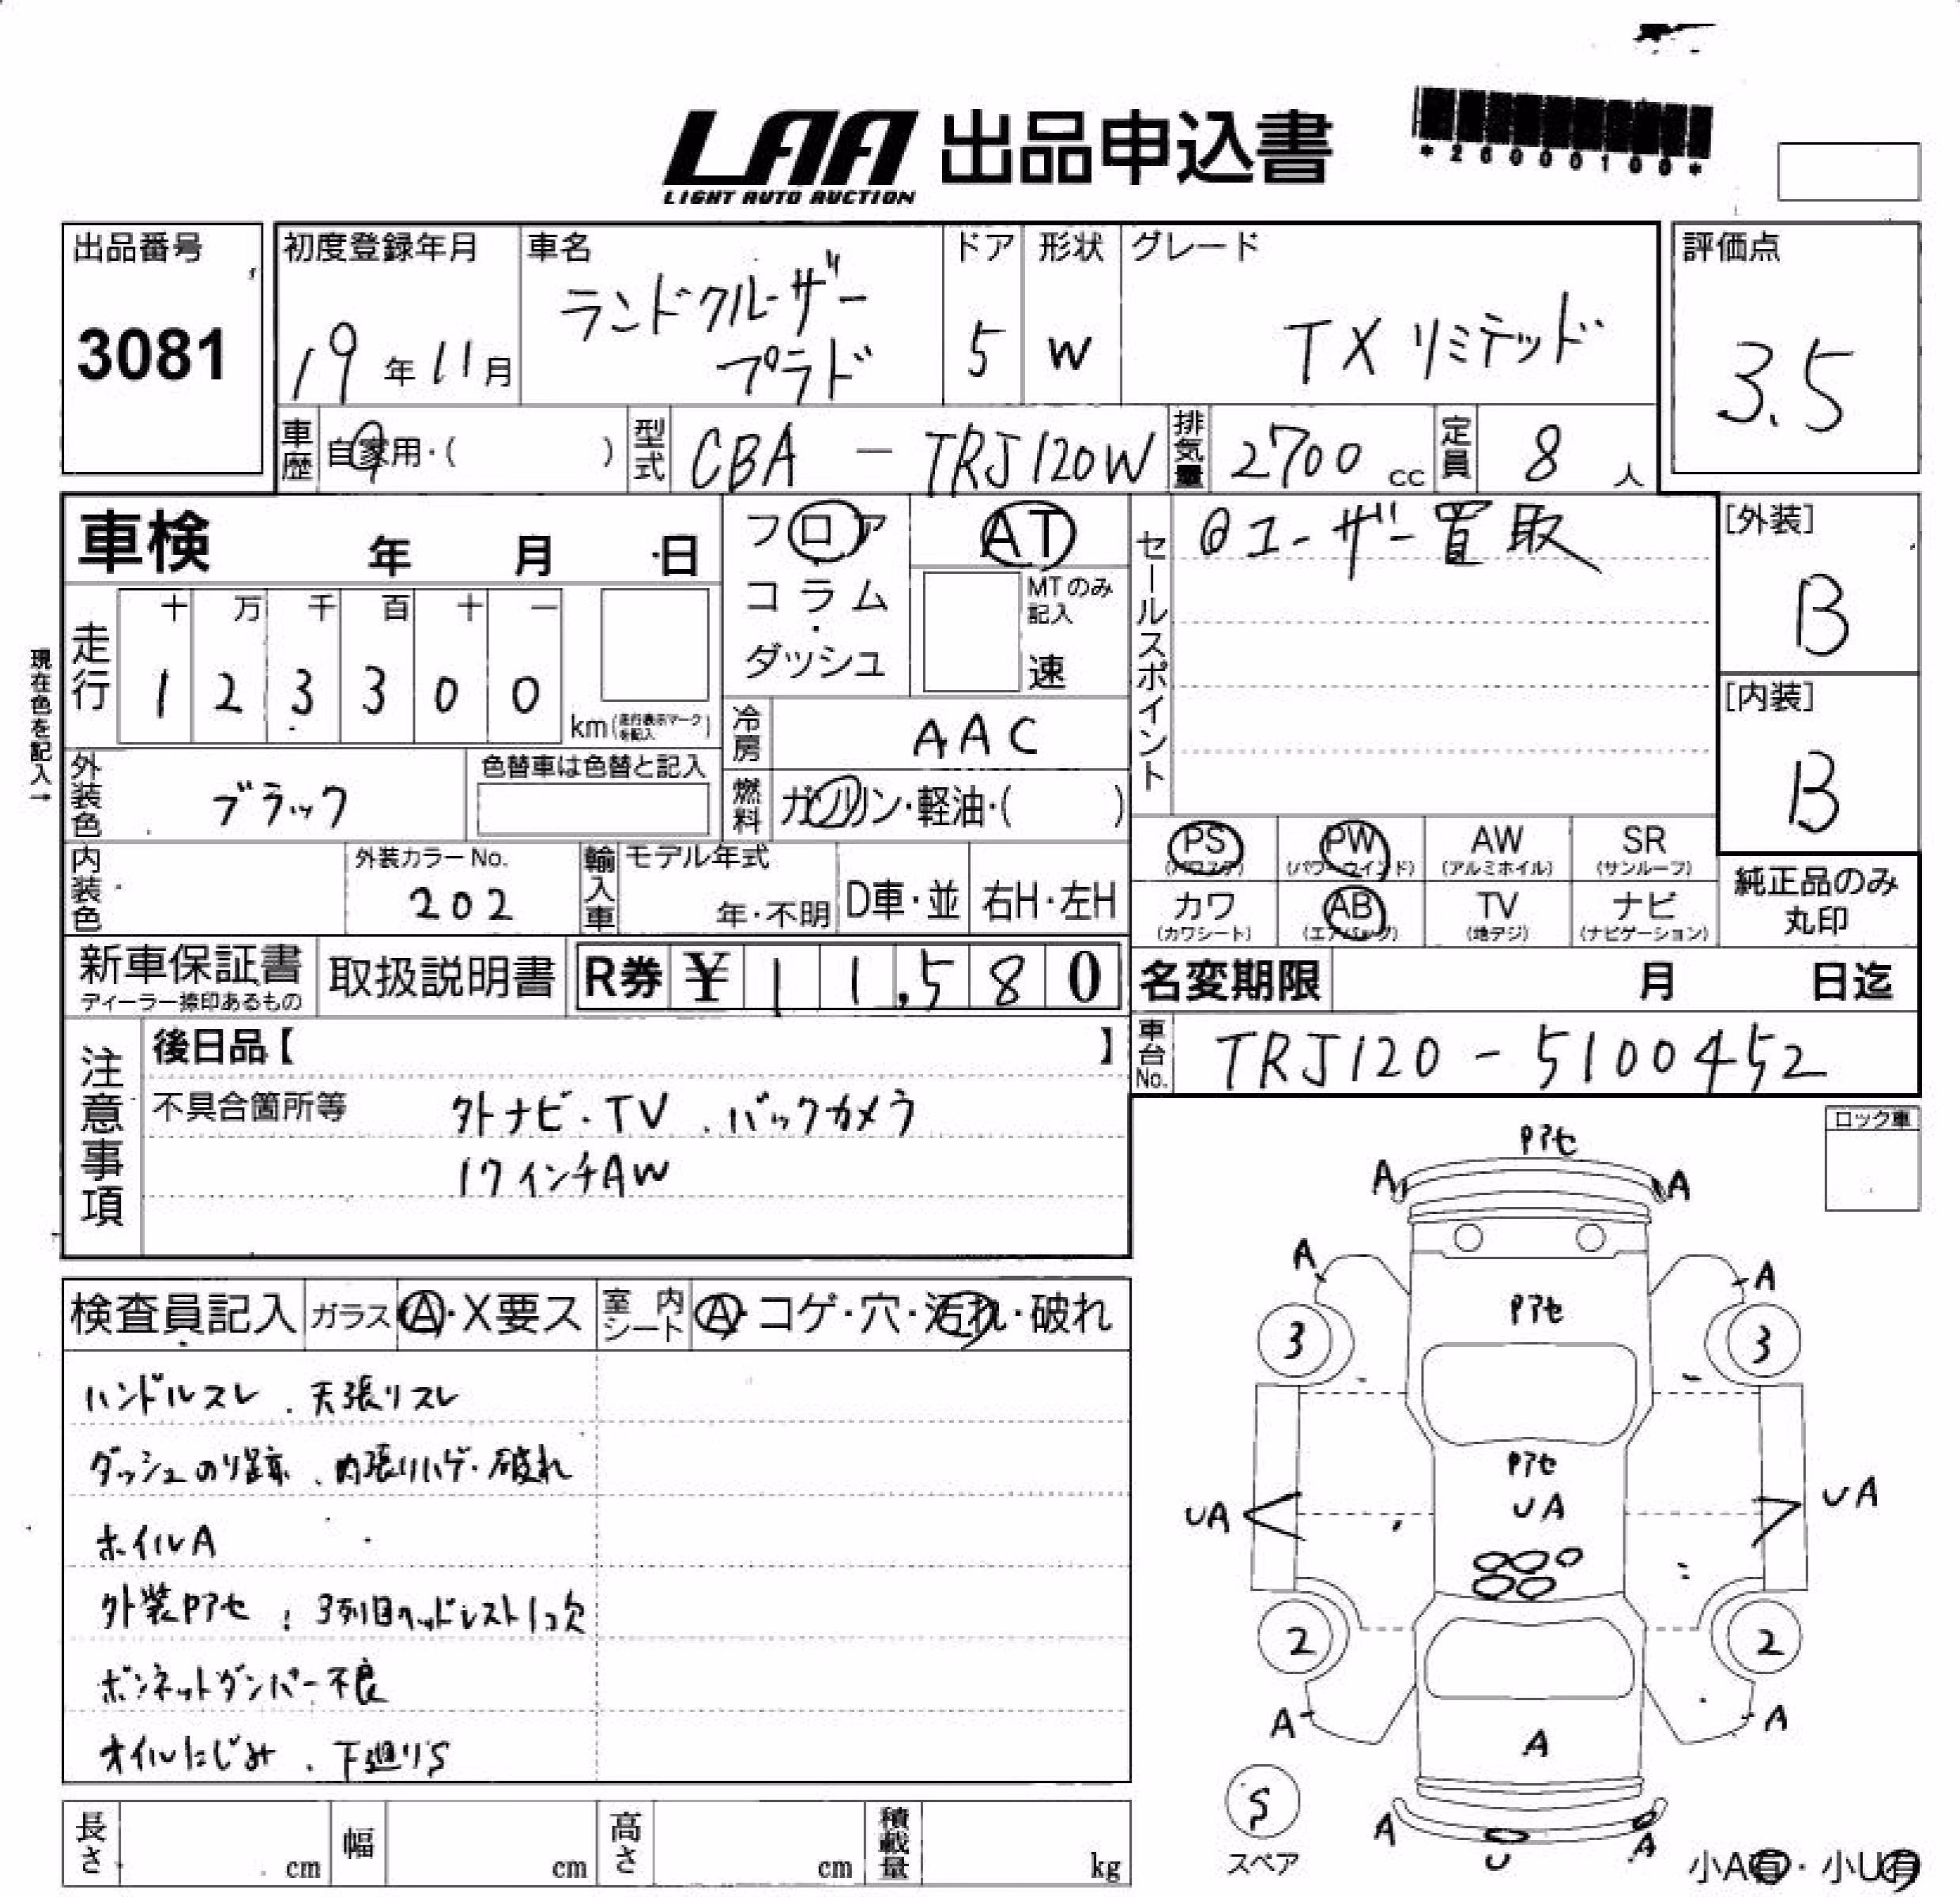 LAA 出品申込書
LIGHT AUTO AUCTION
*26000100*
出品番号
3081
初度登録年月
19年11月
車名
ランドクルーザー
プラド
ドア
5
形状
W
グレード
TXリミテッド
評価点
3.5
車歴 自家用・( )
型式 CBA - TRJ120W
排気量 2700 cc
定員 8 人
車検 年 月 日
フロア
コラム
・
ダッシュ
AT
MTのみ
記入
速
セールスポイント
@ユーザー買取
[外装]
B
[内装]
B
現在色を記入→
走行
十 万 千 百 十 一
1 2 3 3 0 0
km(走行表示マークを記入)
冷房 AAC
外装色 ブラック
色替車は色替と記入
燃料 ガソリン・軽油・( )
内装色
外装カラーNo.
202
輸入車
モデル年式
年・不明
D車・並
右H・左H
PS
(パワステ)
PW
(パワーウインド)
AW
(アルミホイル)
SR
(サンルーフ)
カワ
(カワシート)
AB
(エアバッグ)
TV
(地デジ)
ナビ
(ナビゲーション)
純正品のみ
丸印
新車保証書
ディーラー捺印あるもの
取扱説明書
R券 ¥ 11,580
名変期限 月 日迄
車台No. TRJ120-5100452
注意事項
後日品【 】
不具合箇所等
外ナビ・TV、バックカメラ
17インチAW
ロック車
検査員記入
ガラス A・X要ス
室内シート A・コゲ・穴・汚れ・破れ
ハンドルスレ、天張リスレ
ダッシュのり跡、内張リハゲ・破れ
ホイルA
外装Pアセ、3列目ヘッドレスト1コ欠
ボンネットダンパー不良
オイルにじみ、下廻りS
Pアセ
A A
A A
Pアセ
3 3
Pアセ
UA UA UA
2 2
A A
A
S
スペア
A U A
小A有・小U有
長さ cm
幅 cm
高さ cm
積載量 kg